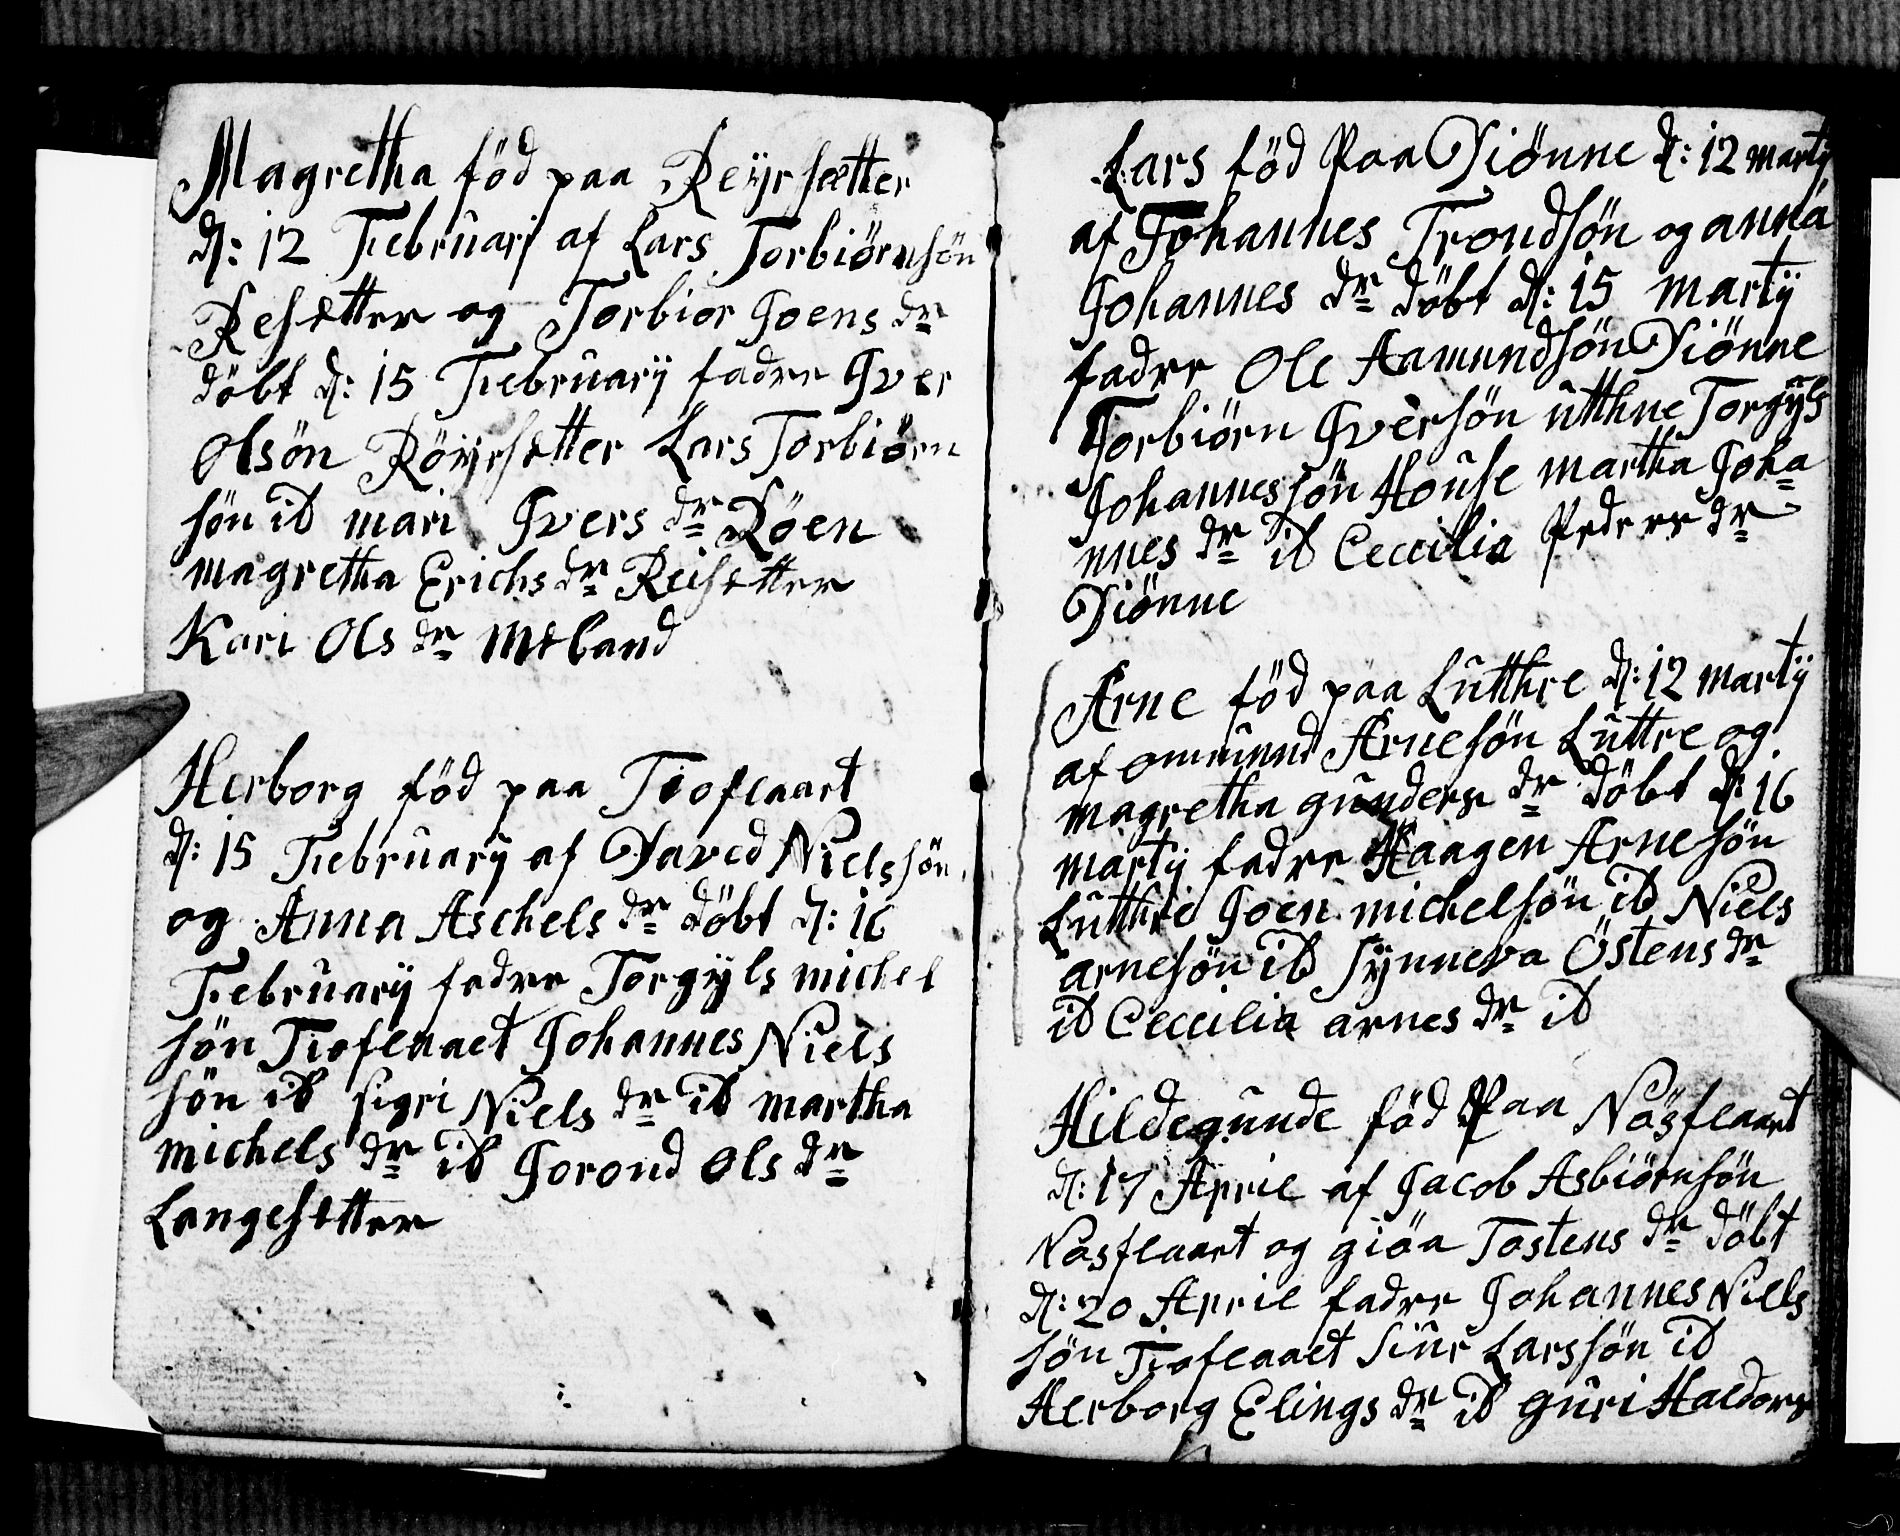 Magretha föd paa Reÿrsetter
d: 12 Februarj af Lars Torbiörnsön
Resetter og Torbior Joens dr
döbt d: 15 Februarÿ fadre Jver
Olsön Röÿrsetter Lars Torbiörn
sön ib mari Jvers dr Röen
magretha Erichs dr Reisetter
Kari Ols dr Meland
Herborg föd paa Tioflaart
d: 15 Februarÿ af David Nielssön
og Anna Aschels dr döbt d: 16
Februarÿ fadre Torgÿls michel
sön Tioflaaet Johannes Niels
sön ib sigri Niels dr ib martha
michels dr ib Jorond Ols dr
Langesetter
Lars föd Paa Diönne d: 12 martÿ
af Johannes Trondsön og anna
Johannes dr döbt d: 15 martÿ
fadre Ole Aamundsön Diönne
Torbiörn Jversön utthne Torgÿls
Johannessön House martha Joha=
nnes dr ib Ceccilia Peders dr
Diönne
Arne föd paa Lutthre d: 12 martÿ
af ommund Arnesön Luttre og
magretha gunders dr döbt d: 16
martÿ fadre Haagen Arnesön
Lutthre Joen michelsön ib Niels
arnesön ib Sÿnneva Östens dr
ib Ceccilia arnes dr ib
Hildegunde föd Paa Nasflaart
d: 17 Aprie af Jacob Asbiörnsön
Nasflaart og giöa Tostens dr döbt
d: 20 Aprie fadre Johannes Niels
sön Tioflaaet Siur Larssön ib
Herborg Elings dr ib guri Haldors